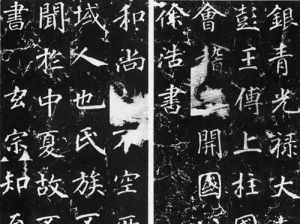 銀青光禄大
彭王傅上柱
會開國
徐浩書
和尚不空
域人也氏族不
聞扵中夏故不
書玄宗知